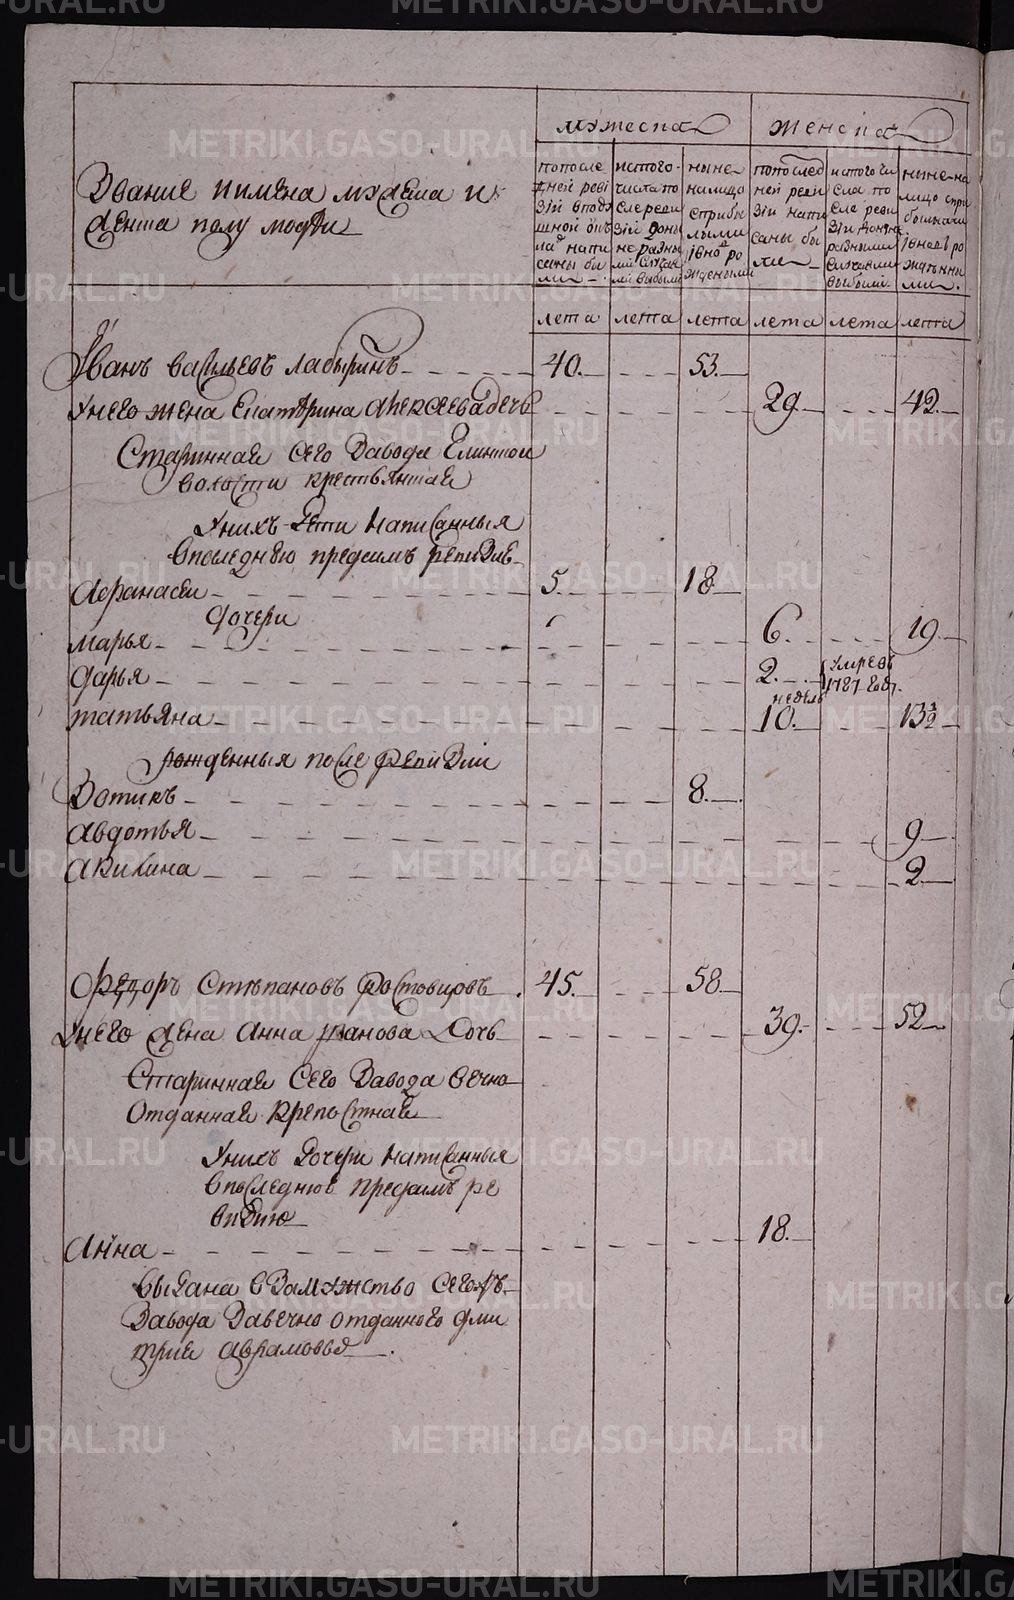 METRIKI.GASO-URAL.RU
мужеска
женска
Звание и имена мужеска и
женска полу людей
по после
дней реви
зіи в под
ушной ок
лад напи
саны бы
ли
ис того
числа по
сле реви
зіи до ны
не разны
ми случая
ми выбыли
ныне
на лицо
с прибы
лыми
и вно во
рожденными
по послед
ней реви
зіи напи
саны бы
ли
ис того чи
сла по
сле реви
зіи до ныне
разными
случаями
выбыли
ныне на
лицо с при
былыми
и вновь ро
жденны
ми
лета лета лета лета лета лета
Иванъ Васильевъ Лабыринъ 40. 53.
У него жена Екатерина Алексеева дочь 29. 42.
Старинная сего завода
волости крестьянская
У нихъ дети написанныя
в последнею пред симъ ревизие
Афанасеи 5. 18
дочери
Марья 6. 19
Дарья 2. умре въ
1787 году.
недель
Татьяна 10. 13½
рожденныя после ревизіи
Зотикъ 8.
Авдотья 9
Акилина 2
Федоръ Степановъ Ростовцовъ 45. 58
У него жена Анна Иванова дочь 39. 52
Старинная сего завода вечно
отданная крепостная
У нихъ дочери написанныя
в последнюю пред симъ ре
визию
Анна 18.
выдана в замужство сего жъ
завода за вечно отданного Дми
трия Аврамовья